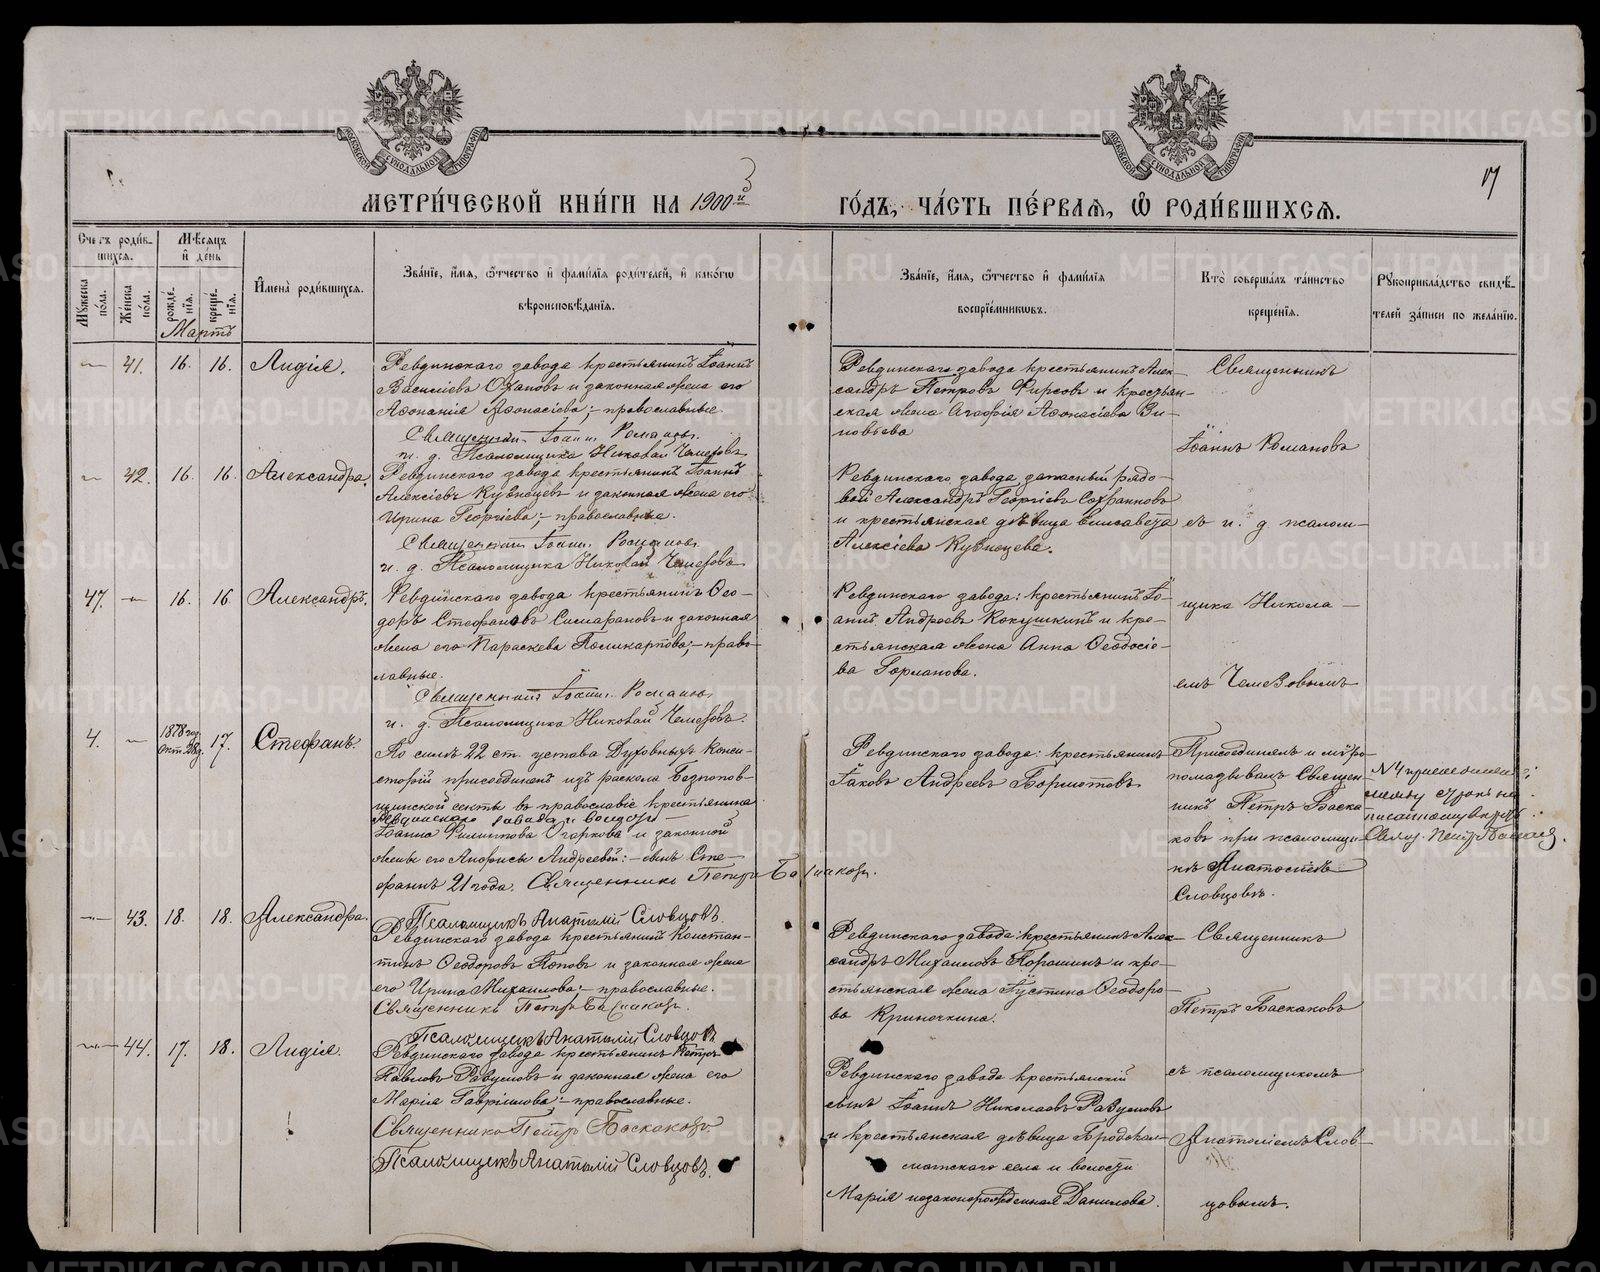 МЕТРИ́ЧЕСКОЙ КНИ́ГИ НА 1900 3й
ГО́ДЪ, ЧА́СТЬ ПЕ́РВАЯ, Ѽ РОДИ́ВШИХСЯ.
17
Счетъ роди́в-
шихся.
Мѣсяцъ
и де́нь
Мужеска по́ла.
Же́нска по́ла.
рожде́нїя.
креще́нїя.
Мартъ
И́мена̀ роди́вшихся.
Зва́нїе, и́мя, ѻ́тчество и фами́лїя роди́телей, и како́гѡ
вѣроисповѣ́данїя.
Зва́нїе, и́мя, ѻ́тчество и фами́лїя
воспрїе́мникѡвъ.
Кто̀ соверша́лъ та́инство
креще́нїя.
Рукоприкла́дство свидѣ́-
телей за́писи по жела́нїю.
— 41. 16. 16. Лидія.
Ревдинскаго завода крестьянинъ Іоаннъ
Василіевъ и законная жена его
Аѳонасіева; – православные.
Священникъ Іоаннъ Романовъ.
и. д. Псаломщика Николай Чемезовъ
Ревдинскаго завода крестьянинъ Алек-
сандръ Петровъ Фирсовъ и крестьян-
ская жена Агафія Аѳонасіева Зи-
новьева
Священникъ
Іоаннъ Романовъ
— 42. 16. 16. Александра.
Ревдинскаго завода крестьянинъ Іоаннъ
Алексіевъ Кузнецовъ и законная жена его
Ирина Георгіева; – православные.
Священникъ Іоаннъ Романовъ
и. д. Псаломщика Николай Чемезовъ
Ревдинскаго завода запасный рядо-
вой Александръ Георгіевъ
и крестьянская дѣвица Елисавета
Алексіева Кузнецова.
съ и. д. псалом-
47. — 16. 16. Александръ.
Ревдинскаго завода крестьянинъ Ѳео-
доръ Стефановъ и законная
жена его Параскева Поликарпова; – право-
славные.
Священникъ Іоаннъ Романовъ
и. д. Псаломщика Николай Чемезовъ.
Ревдинскаго завода: крестьянинъ Іо-
аннъ Андреевъ Кокушкинъ и кре-
стьянская жена Анна Ѳеодосіе-
ва
щика Никола-
емъ Чемезовымъ
4. — 1878 год. Окт. 28 д. 17. Стефанъ.
По силѣ 22 ст. устава Духовныхъ Конси-
сторій присоединенъ изъ раскола Безпопов-
щинской секты въ православіе крестьянина
Ревдинскаго завода и волости –
Іоанна Филиппова Огаркова и законной
жены его Анфисы Андреевой: – сынъ Сте-
фанъ 21 года. Священникъ Петръ Баскаковъ.
Псаломщикъ Анатолій Словцовъ.
Ревдинскаго завода: крестьянинъ
Іаковъ Андреевъ Бормотовъ
Присоединялъ и мѵро-
помазывалъ Священ-
никъ Петръ Баска-
ковъ при псаломщи-
кѣ Анатоліѣ
Словцовѣ.
Свящ. Петръ
— 43. 18. 18. Александра.
Ревдинскаго завода крестьянинъ Констан-
тинъ Ѳеодоровъ Поповъ и законная жена
его Ирина Михаилова; – православные.
Священникъ Петръ Баскаковъ.
Псаломщикъ Анатолій Словцовъ
Ревдинскаго завода: крестьянинъ Алек-
сандръ Михаиловъ Порошинъ и кре-
стьянская жена Іустина Ѳеодоро-
ва Криночкина.
Священникъ
Петръ Баскаковъ
— 44. 17. 18. Лидія.
Ревдинскаго завода крестьянинъ Петръ
Павловъ Разумовъ и законная жена его
Марія Гавріилова: – православные.
Священникъ Петръ Баскаковъ
Псаломщикъ Анатолій Словцовъ.
Ревдинскаго завода крестьянскій
сынъ Іоаннъ Николаевъ Разумовъ
и крестьянская дѣвица Бродокал-
матскаго села и волости
Марія незаконорожденная Данилова.
съ псаломщикомъ
Анатоліемъ Слов-
цовымъ.
METRIKI.GASO-URAL.RU